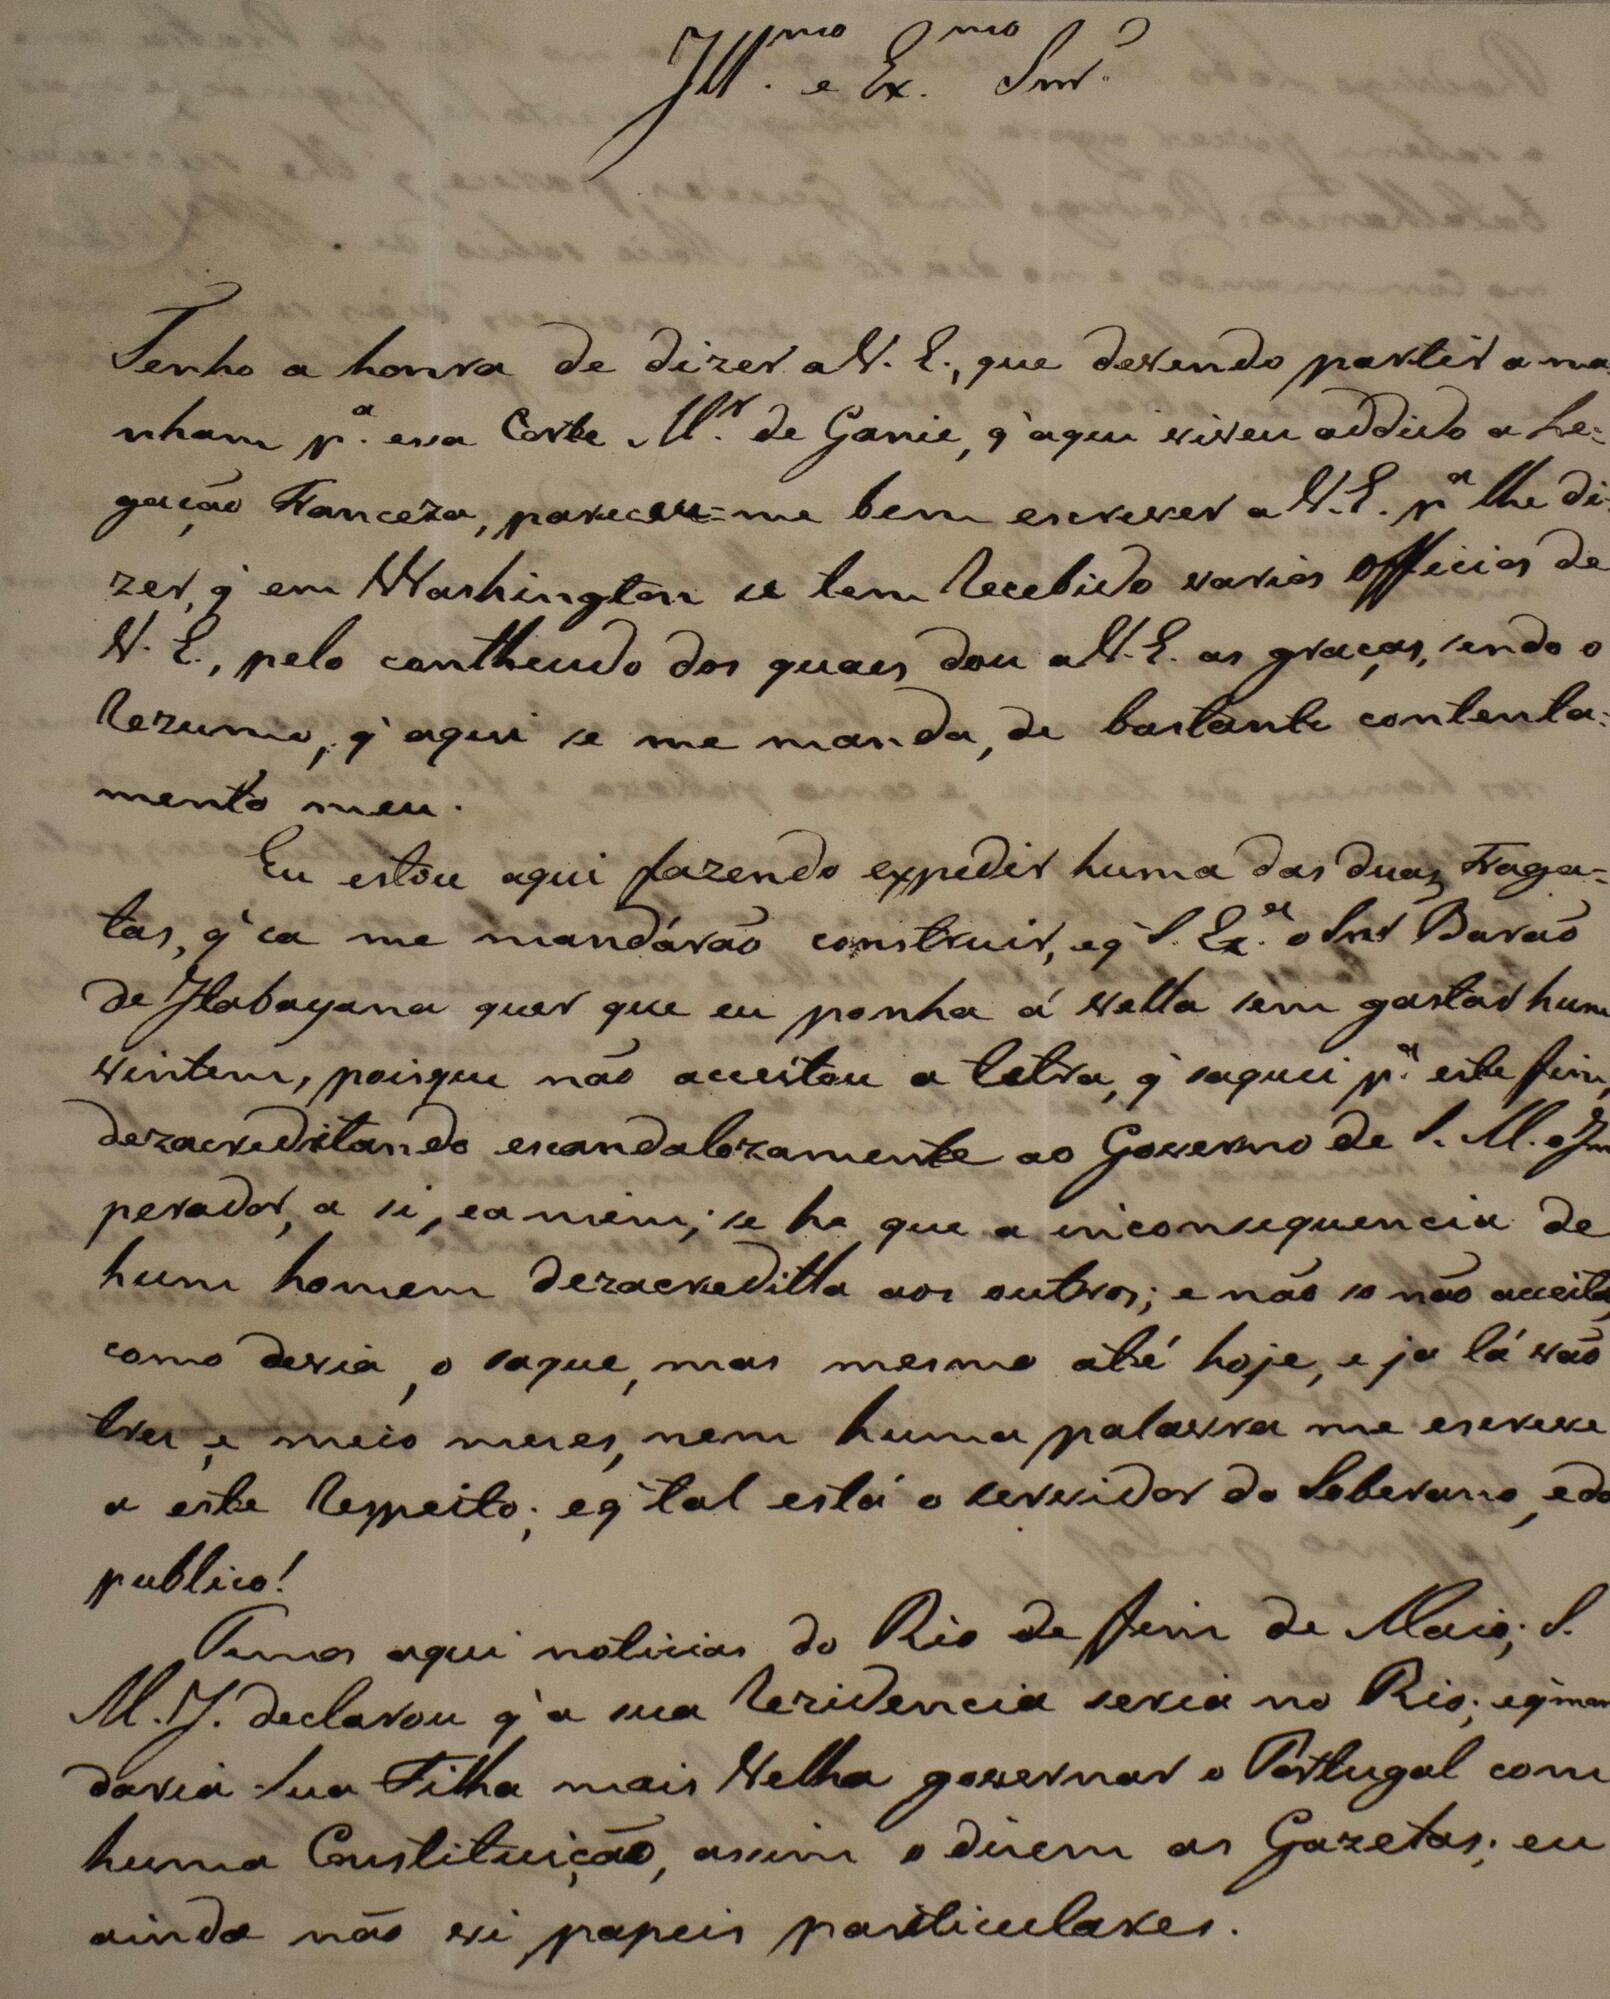 Ill.mo e Ex.mo Snr.
Tenho a honra de dizer a V. E., que devendo partir a ma
nham p.a essa Corte M.r de Ganie, q' aqui viveu addido a Le=
gação Franceza, pareceu=me bem escrever a V. E. p.a lhe di-
zer, q' em Washington se tem recebido varios officios de
V. E., pelo contheudo dos quaes dou a V. E. as graças, sendo o
rezumo, q' aqui se me manda, de bastante contenta=
mento meu.
Eu estou aqui fazendo expedir huma das duas Fraga=
tas, q' ca me mandárão construir, e q' S. Ex.a o Snr Barão
de Itabayana quer que eu ponha á vella sem gastar hum
vintem, poisque não acceitou a letra, q' saquei p.a este fim,
dezacreditando escandalozamente ao Governo de S. M. o Im
perador, a si, e a mim; se he que a inconsequencia de
hum homem dezacreditta aos outros; e não so não acceita,
como devia, o saque, mas mesmo até hoje, e ja lá vão
tres, e meio meses, nem huma palavra me escreve
a este respeito; e q' tal está o servidor do Soberano, e do
publico!
Temos aqui noticias do Rio de fim de Maio; S.
M. I. declarou q' a sua rezidencia seria no Rio; e q' man
daria Sua Filha mais Velha governar o Portugal com
huma Constituição, assim o dizem as Gazetas; eu
ainda não vi papeis particulares.